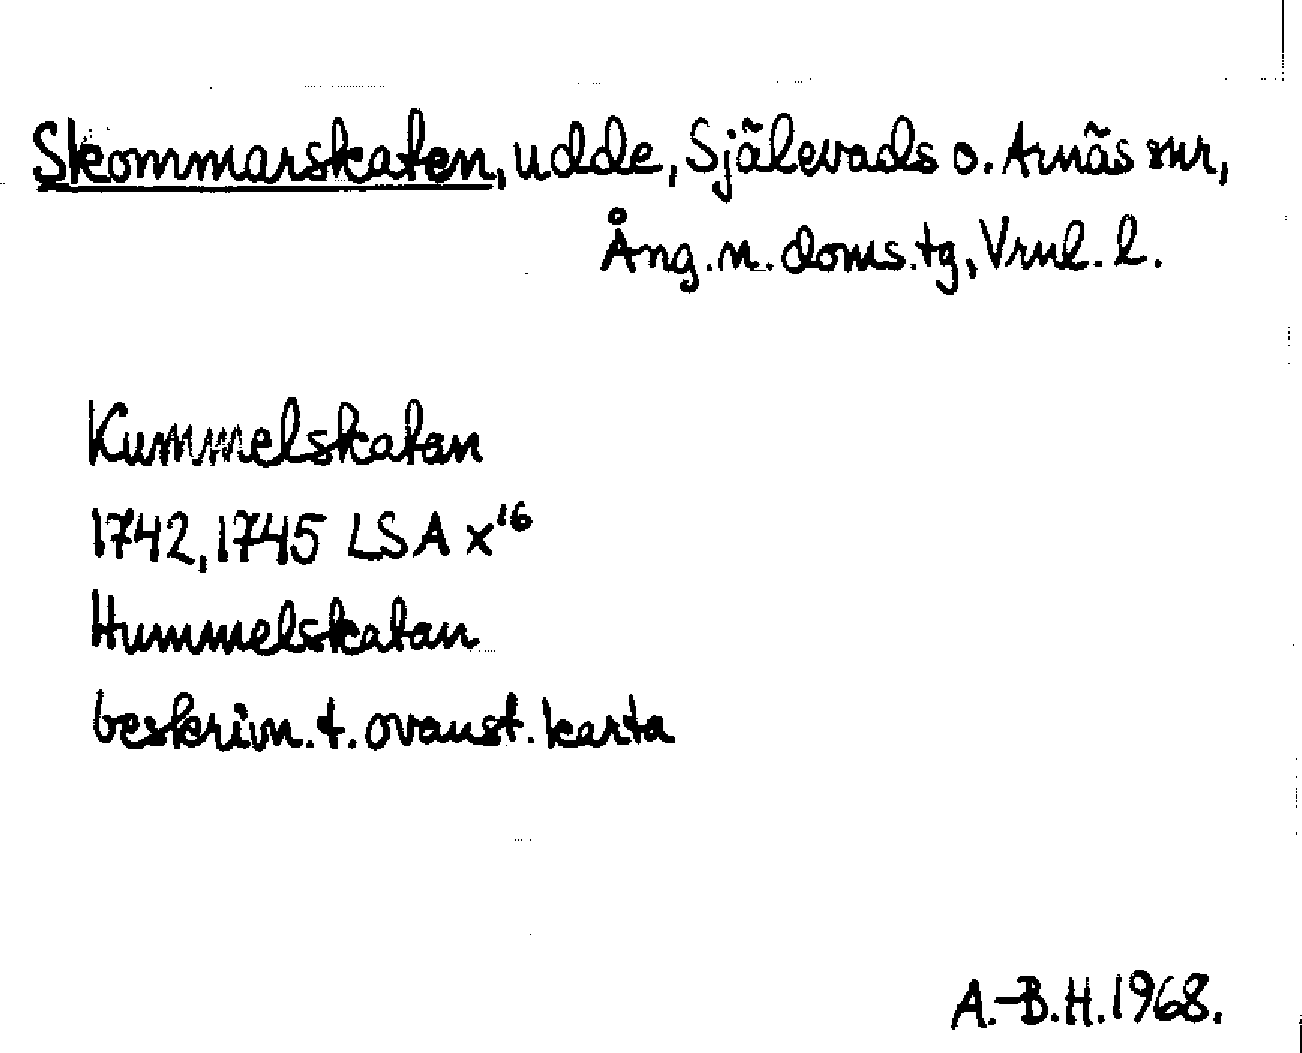 Skommarskaten, udde, Själevads o. Arnäs snr,
Ång. n. doms. tg, Vrnl. l.
Kummelskatan
1742, 1745 LSA x¹⁶
Hummelskatan
beskrivn. t. ovanst. karta
A.-B.H. 1968.